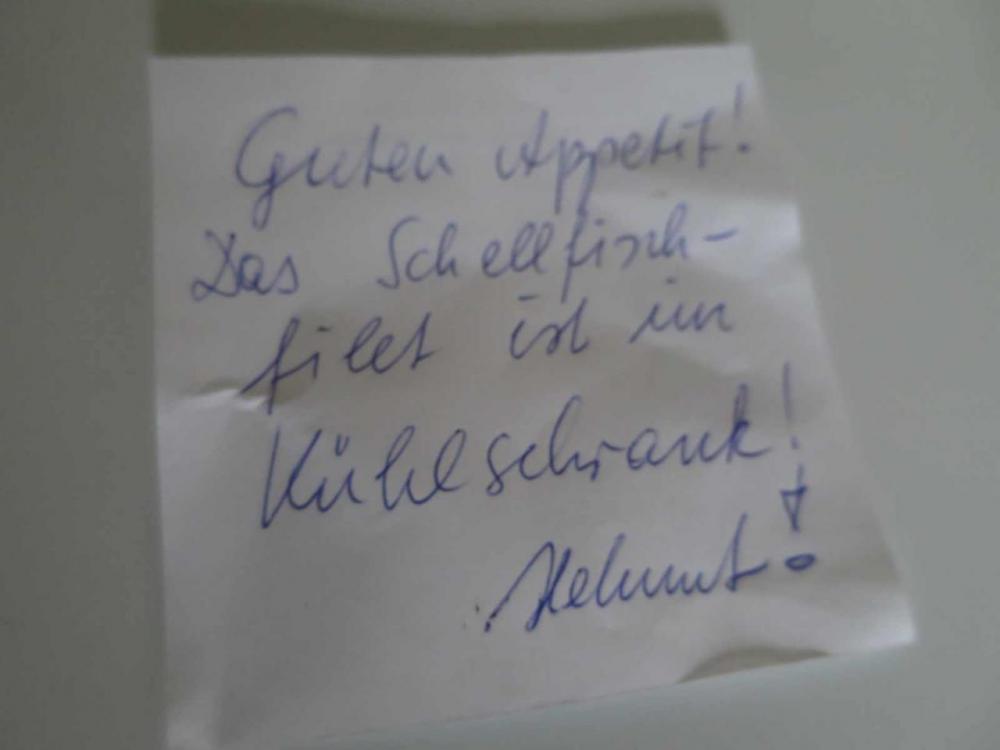 Guten Appetit!
Das Schellfisch-
filet ist im
Kühlschrank!
Helmut!